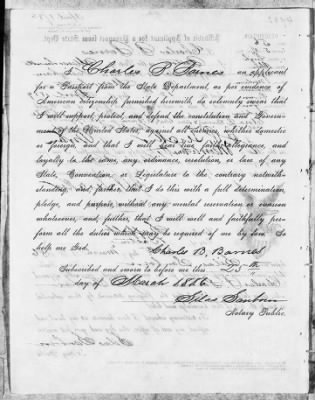 I Charles B. Barnes an applicant
for a Passport from the State Department, as per evidence of
American citizenship furnished herewith, do solemnly swear that
I will support, protect, and defend the constitution and Govern-
ment of the United States, against all enemies, whether domestic
or foreign, and that I will bear true faith, allegiance, and
loyalty to the same, any ordinance, resolution, or law of any
State, Convention, or Legislature to the contrary notwith-
standing, and further, that I do this with a full determination,
pledge, and purpose, without any mental reservation or evasion
whatsoever, and, further, that I will well and faithfully per-
form all the duties which may be required of me by law. So
help me God.
Charles B. Barnes
Subscribed and sworn to before me this 25th
day of March 1866
Silas
Notary Public.